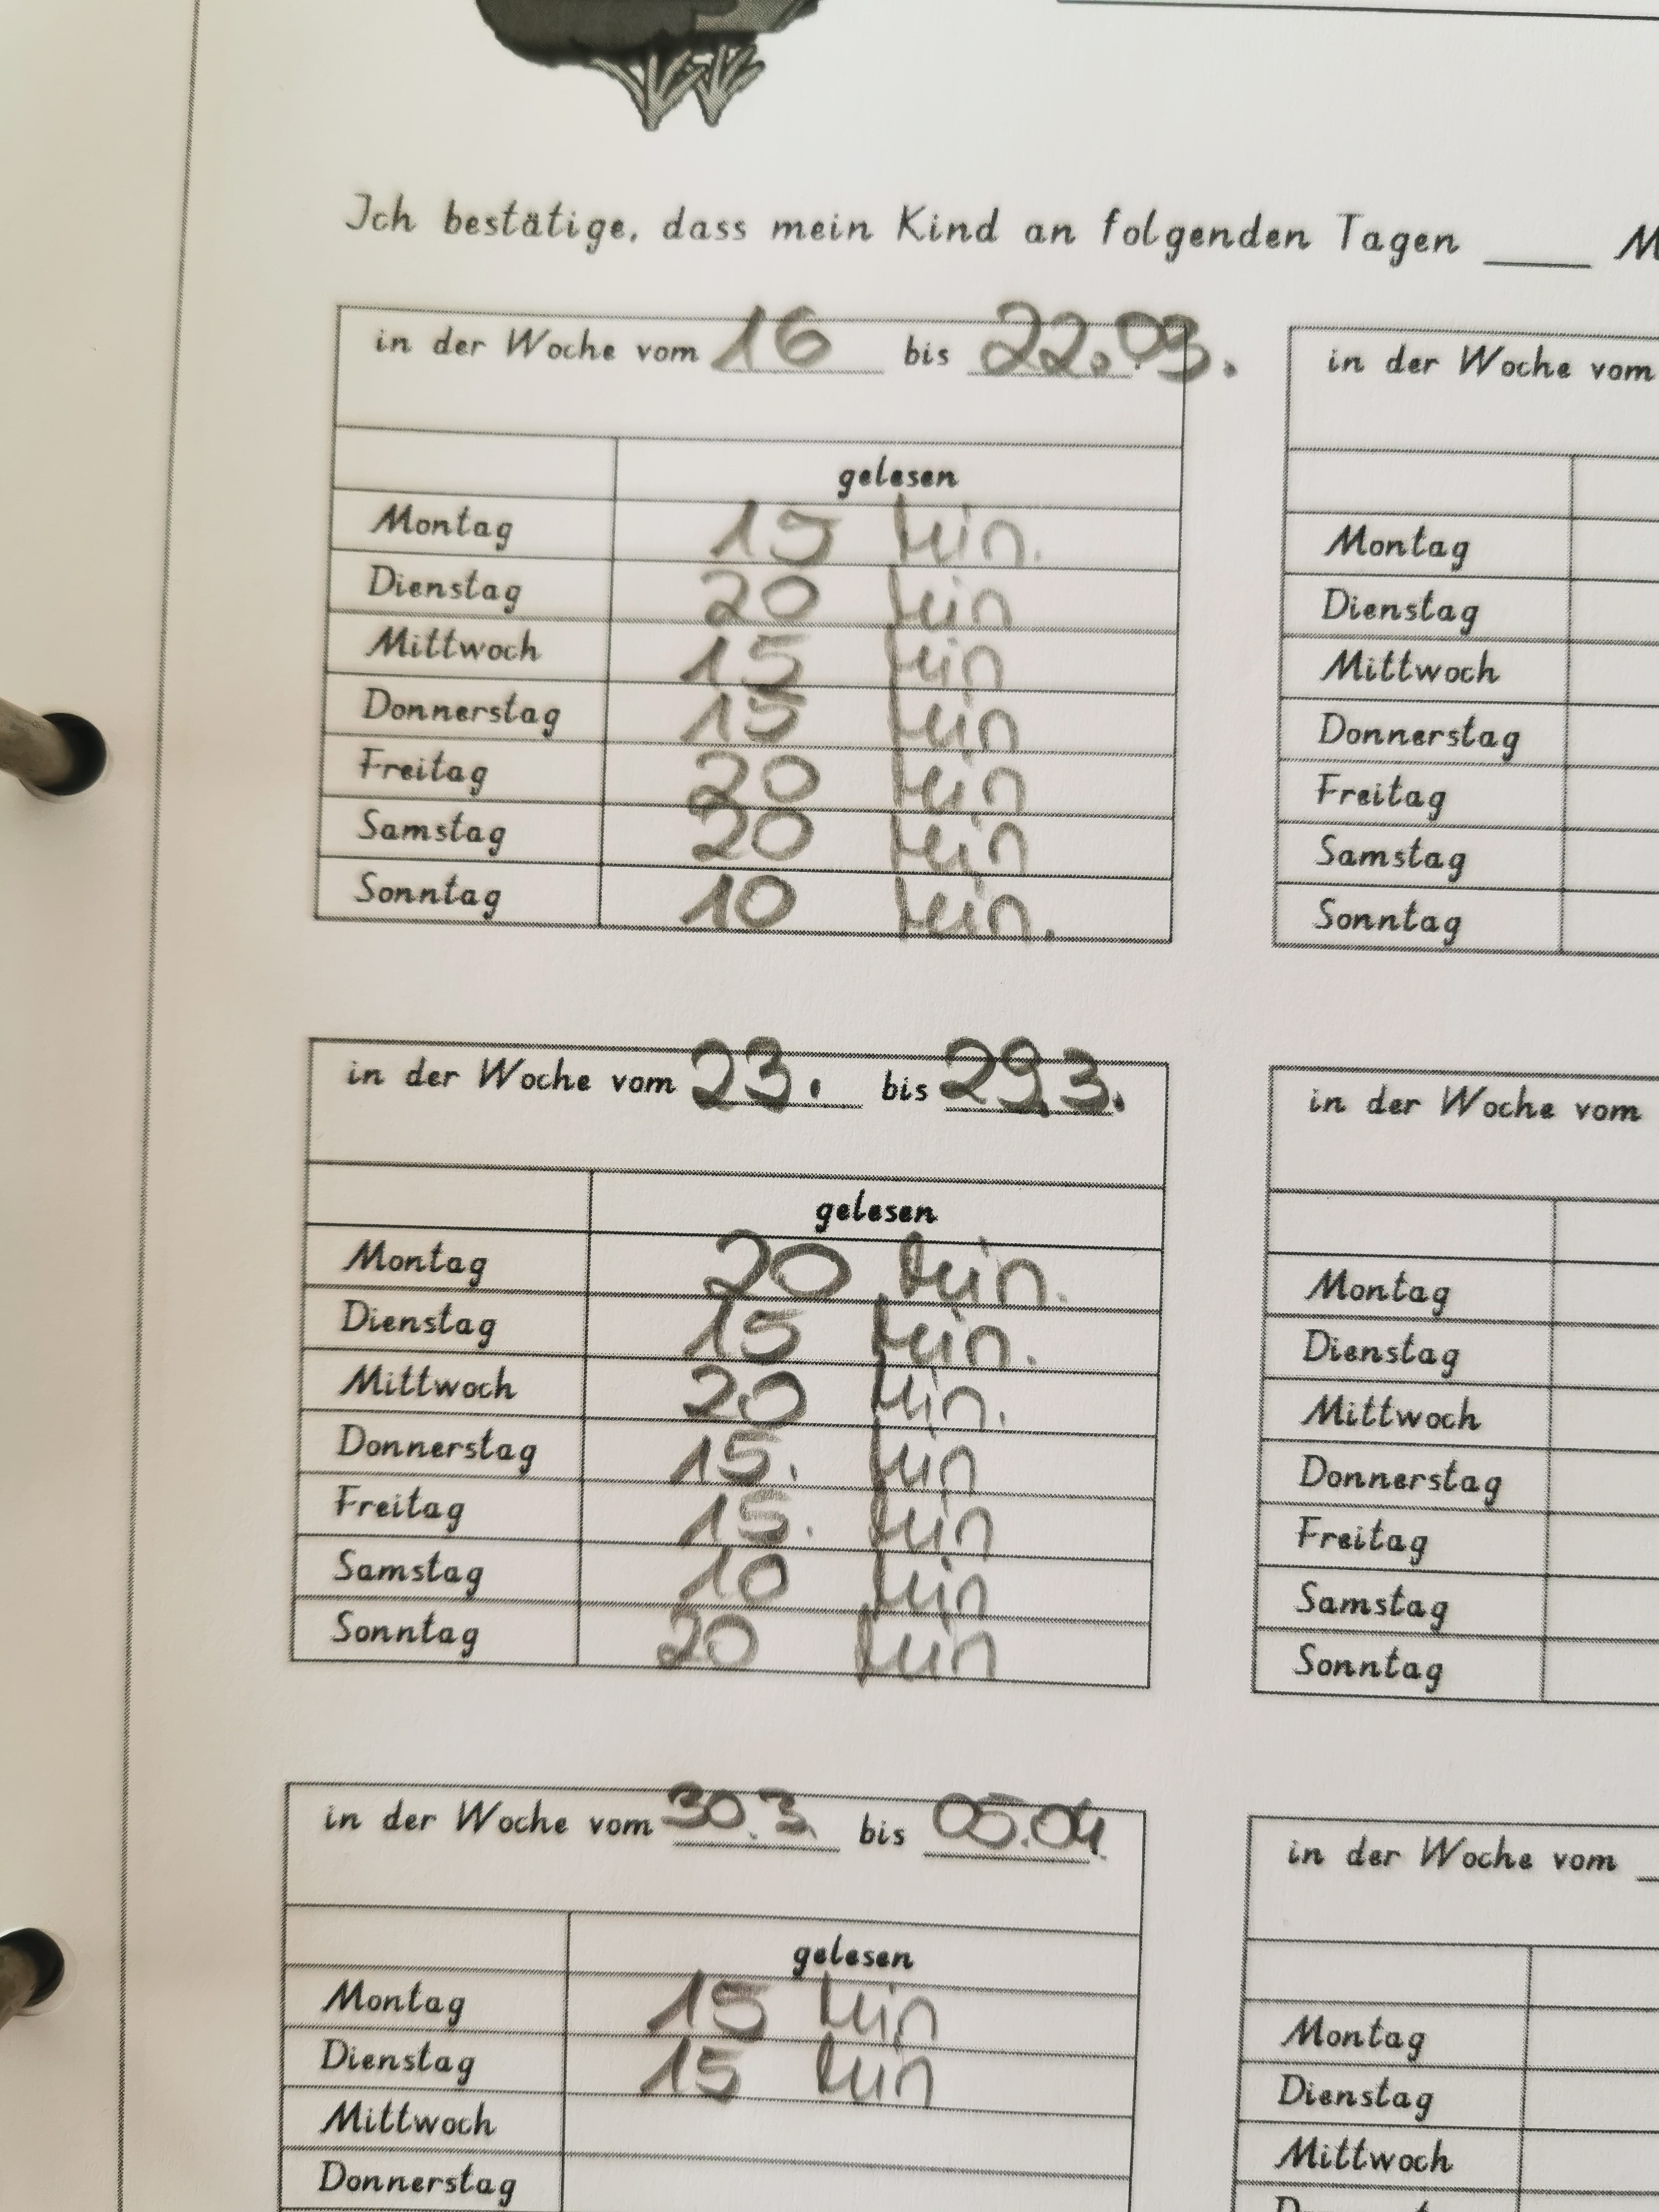 Ich bestätige, dass mein Kind an folgenden Tagen ____ M
in der Woche vom 16 bis 22.03.
gelesen
Montag 15 Min.
Dienstag 20 Min
Mittwoch 15 Min
Donnerstag 15 Min
Freitag 20 Min
Samstag 20 Min
Sonntag 10 Min.
in der Woche vom
Montag
Dienstag
Mittwoch
Donnerstag
Freitag
Samstag
Sonntag
in der Woche vom 23. bis 29.3.
gelesen
Montag 20 Min.
Dienstag 15 Min.
Mittwoch 20 Min.
Donnerstag 15. Min
Freitag 15. Min
Samstag 10 Min
Sonntag 20 Min
in der Woche vom
Montag
Dienstag
Mittwoch
Donnerstag
Freitag
Samstag
Sonntag
in der Woche vom 30.3. bis 05.04.
gelesen
Montag 15 Min
Dienstag 15 Min
Mittwoch
Donnerstag
in der Woche vom
Montag
Dienstag
Mittwoch